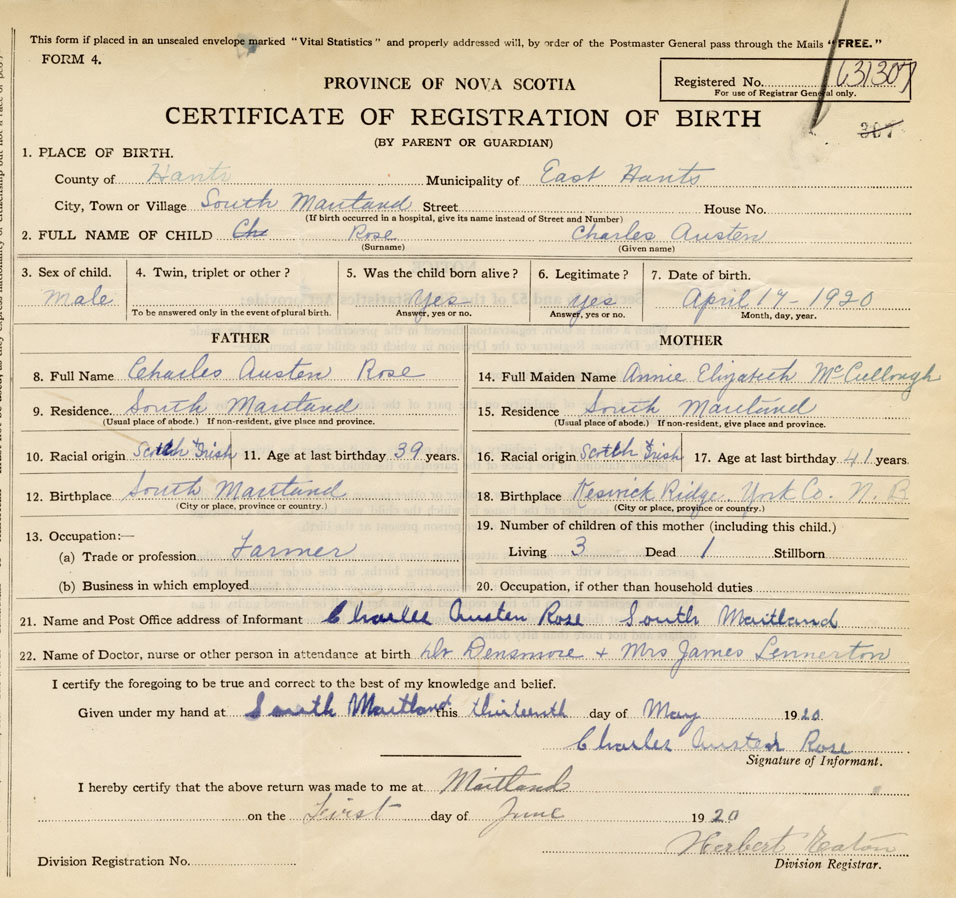 This form if placed in an unsealed envelope marked "Vital Statistics" and properly addressed will, by order of the Postmaster General pass through the Mails "FREE."
FORM 4.
PROVINCE OF NOVA SCOTIA
Registered No. 631307
For use of Registrar General only.
CERTIFICATE OF REGISTRATION OF BIRTH
307
(BY PARENT OR GUARDIAN)
1. PLACE OF BIRTH.
County of Hants Municipality of East Hants
City, Town or Village South Maitland Street House No.
(If birth occurred in a hospital, give its name instead of Street and Number)
2. FULL NAME OF CHILD Cha Rose Charles Austen
(Surname) (Given name)
3. Sex of child. 4. Twin, triplet or other? 5. Was the child born alive? 6. Legitimate? 7. Date of birth.
Male Yes Yes April 17 - 1920
To be answered only in the event of plural birth. Answer, yes or no. Answer, yes or no. Month, day, year.
FATHER MOTHER
8. Full Name Charles Austen Rose 14. Full Maiden Name Annie Elizabeth McCullough
9. Residence. South Maitland 15. Residence South Maitland
(Usual place of abode.) If non-resident, give place and province. (Usual place of abode.) If non-resident, give place and province.
10. Racial origin Scotch & Irish 11. Age at last birthday 39 years. 16. Racial origin Scotch & Irish 17. Age at last birthday 41 years.
12. Birthplace South Maitland 18. Birthplace Keswick Ridge. York Co. N. B
(City or place, province or country.) (City or place, province or country.)
13. Occupation:— 19. Number of children of this mother (including this child.)
(a) Trade or profession Farmer Living 3 Dead 1 Stillborn
(b) Business in which employed 20. Occupation, if other than household duties
21. Name and Post Office address of Informant Charles Austen Rose South Maitland
22. Name of Doctor, nurse or other person in attendance at birth Dr Densmore + Mrs James Lennerton
I certify the foregoing to be true and correct to the best of my knowledge and belief.
Given under my hand at South Maitland this thirteenth day of May 1920.
Charles Austen Rose
Signature of Informant.
I hereby certify that the above return was made to me at Maitland
on the First day of June 1920
Herbert Eaton
Division Registration No. Division Registrar.